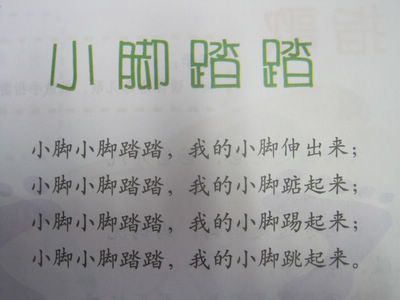 小脚踏踏
小脚小脚踏踏，我的小脚伸出来；
小脚小脚踏踏，我的小脚踮起来；
小脚小脚踏踏，我的小脚踢起来；
小脚小脚踏踏，我的小脚跳起来。